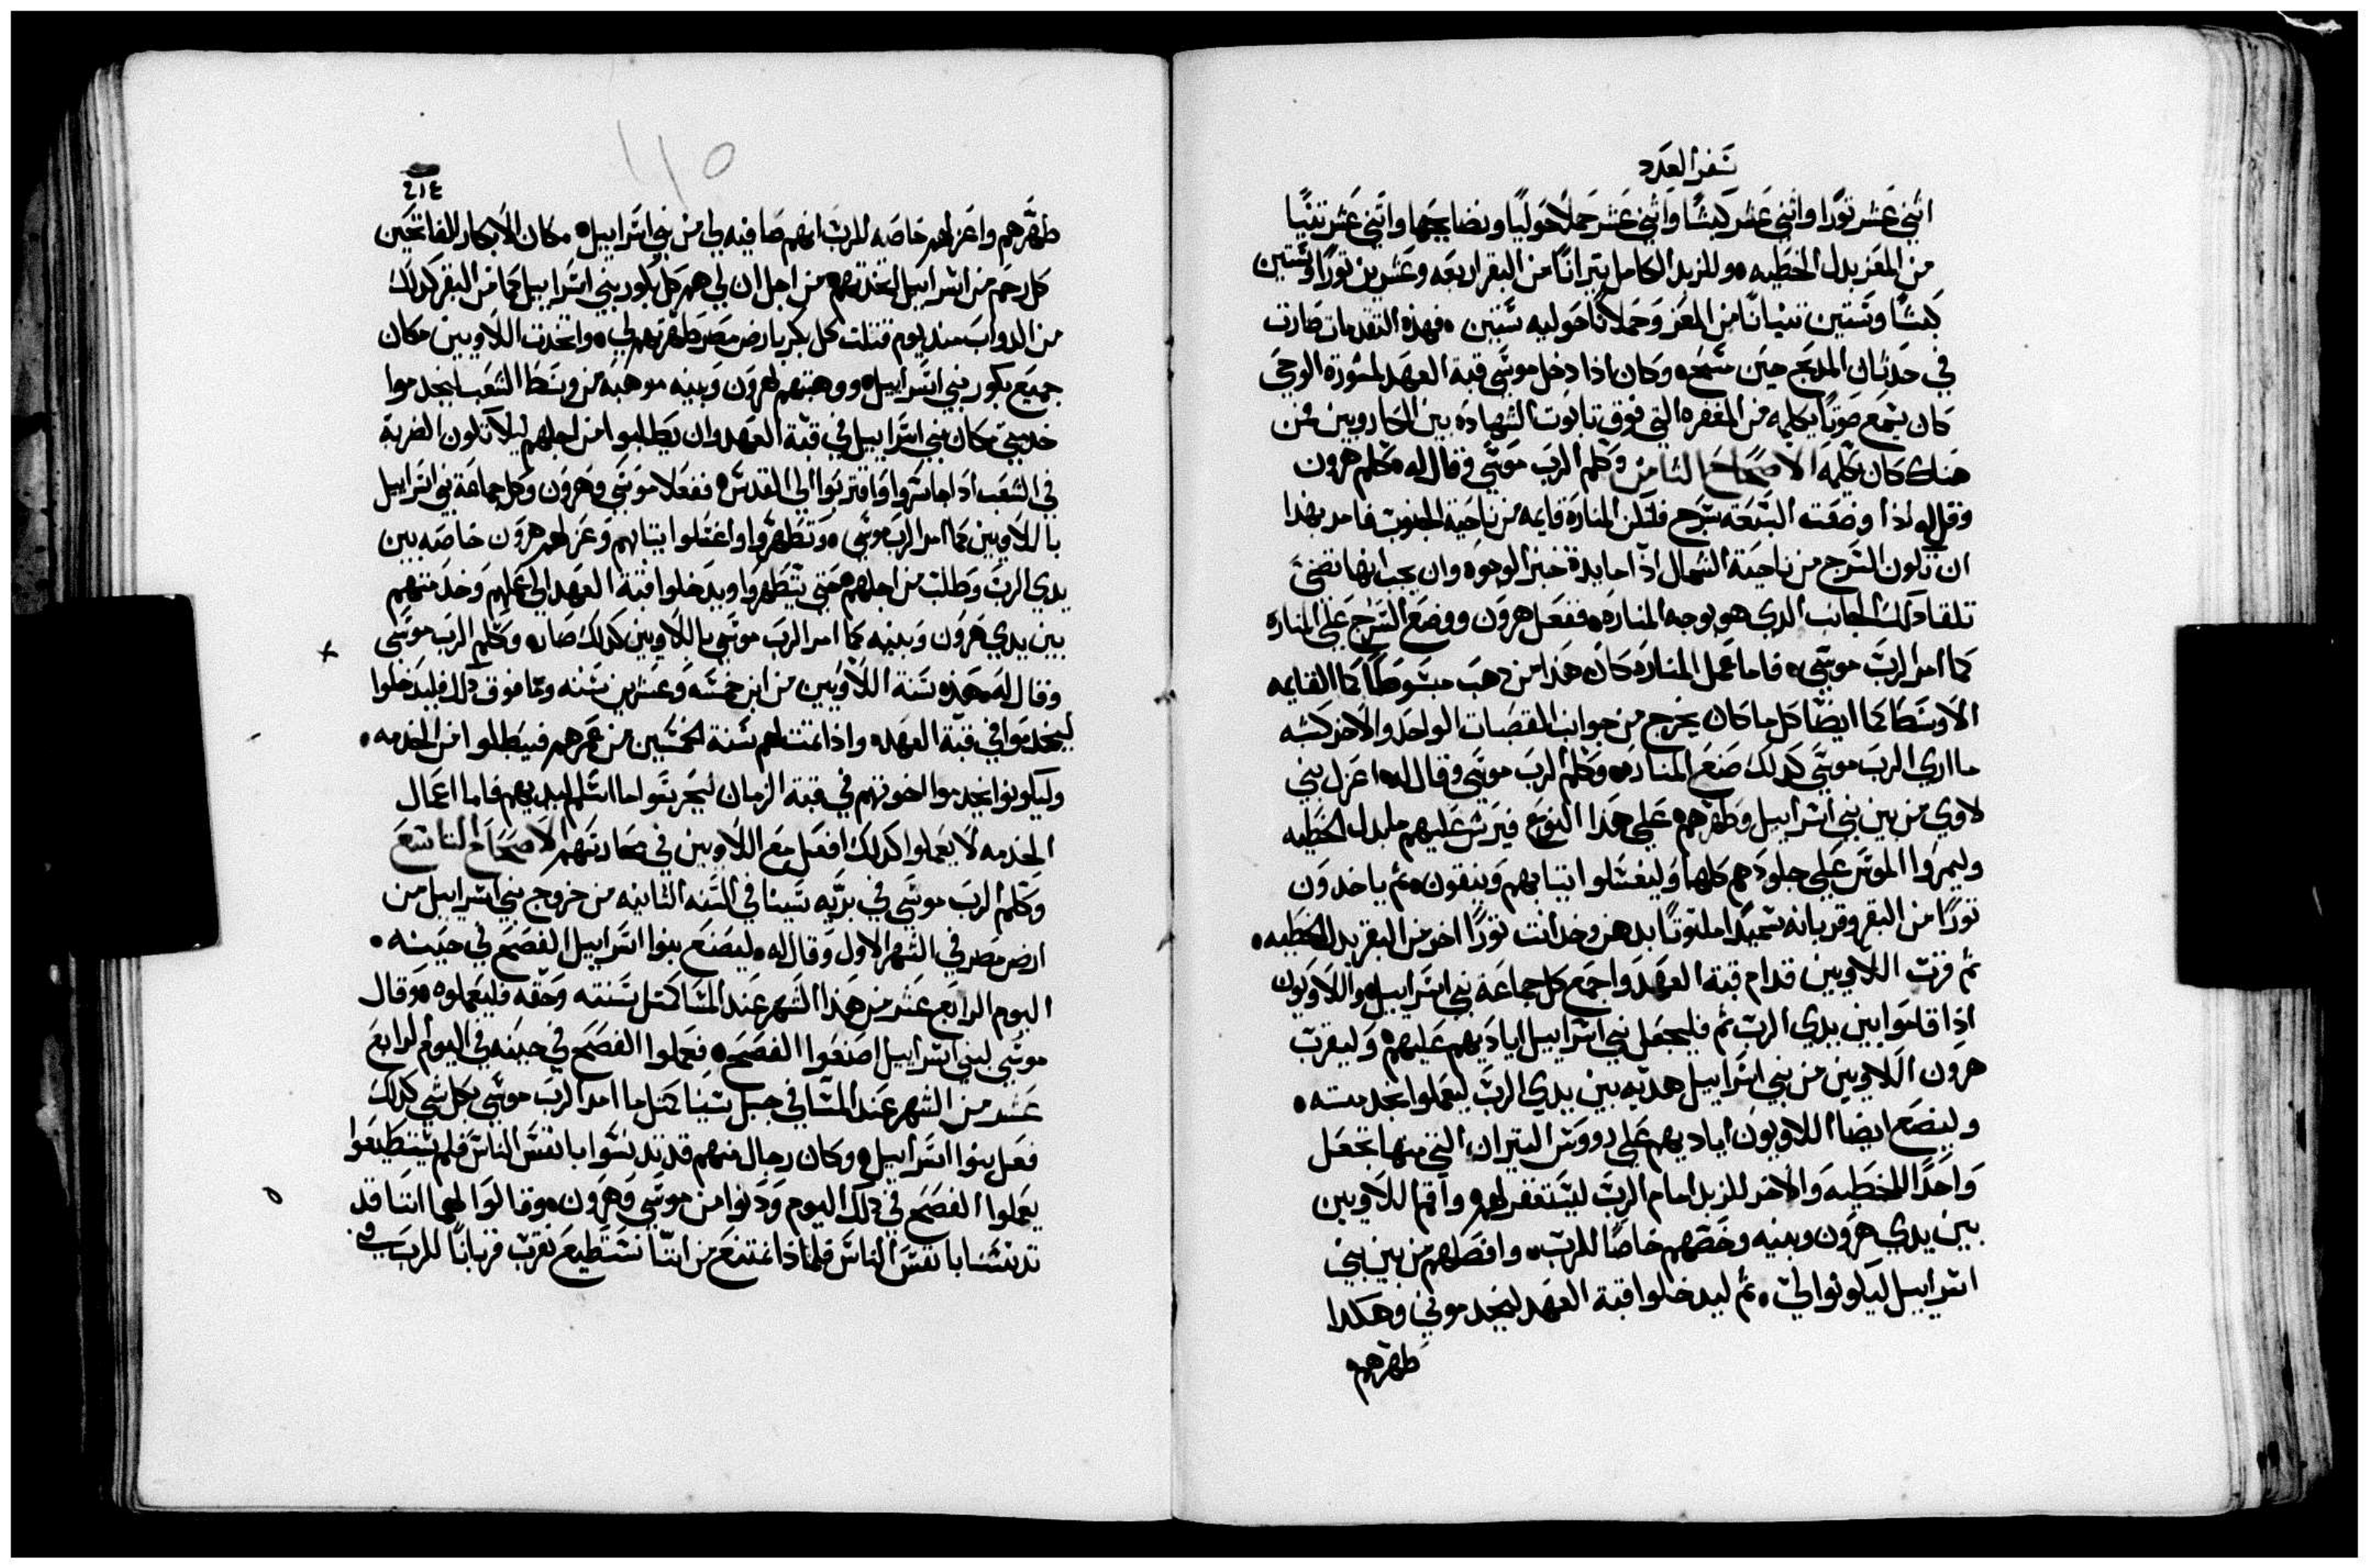 سفر العدد
اثني عشر ثورًا واثني عشر كبشًا واثني عشر حملًا حوليًا ونضايحها واثني عشر تنيًا
من المعز بدل الخطيه، وللزبد الكامل تيرانًا من البقر اربعه وعشرين ثورًا وستين
كبشًا وستين تنيانًا من المعز وحملانًا حوليه ستين، فهذه التقدمات صارت
في حدثان المدبح حين مسح، وكان اذا دخل موسى قبة العهد لمشورة الوحي
كان يسمع صوتًا يكلمه من المغفره التي فوق تابوت الشهاده بين الكاروبين فمن
هناك كان يكلمه الاصحاح الثامن وكلم الرب موسى وقال له، كلم هرون
وقل له اذا وضعت السبعه سرج فلتكن المناره قايمه من ناحية الجنوب فامر بهذا
ان تكون السرج من ناحية الشمال اذا مايدة خبز الوجوه وان يجب انها تضى
تلقا ذلك الجانب الدي هو بوجه المناره، ففعل هرون ووضع السرج على المناره
كما امر الرب موسى، فاما عمل المناره كان هذا من دهب مبسوطًا كما القايمه
الاوسط كما ايضًا كل ما كان يخرج من جوانب القصبات الواحد والاخر كشبه
ما اري الرب موسى كدلك صنع المناره، وكلم الرب موسى وقال له، اعزل بني
لاوي من بين بني اسراييل وطهرهم، على هدا النوع فيرش عليهم ما بدل الخطيه
وليمروا الموس على جلودهم كلها وليغسلوا اتيابهم وينقون، ثم ياخدون
ثورًا من البقر وقربانه سميدًا ملتوتًا بدهن وخد انت ثورًا اخر من البقر بدل الخطيه،
ثم قرب اللاويين قدام قبة العهد واجمع كل جماعة بني اسراييل، واللاويون
اذا قاموا بين يدي الرب ثم فليجعل بني اسراييل اياديهم عليهم، وليقرب
هرون اللاويين من بني اسراييل هديه بين يدي الرب ليعملوا بخدمته،
وليضع ايضا اللاويون اياديهم على رووس التيران، التي منها تجعل
واحدًا للخطيه والاخر للزبد امام الرب ليستغفر لهم، واقم اللاويين
بين يدي هرون وبنيه وخصهم خاصًا للرب، وافصلهم من بين بني
اسراييل ليكونوا لي، ثم ليدخلوا قبة العهد ليخدموني وهكدا
طهرهم
٢١٤
110
طهرهم واعزلهم خاصه للرب انهم صافيه لي من بني اسراييل، مكان الابكار الفاتحين
كل رحم من اسراييل اتخدتهم، من اجل ان لي هم كل بكور بني اسراييل كما من البقر كدلك
من الدواب مند يوم قتلت كل بكر بارض مصر طهرتهم لي، واتخدت اللاويين مكان
جميع بكور بني اسراييل، ووهبتهم لهرون وبنيه موهبه من وسط الشعب ليخدموا
خدمتي مكان بني اسراييل في قبة العهد وان يطلبوا من اجلهم ليلا تكون الضربة
في الشعب ادا جاسروا واقتربوا الى القدس، ففعلا موسى وهرون وكل جماعة بني اسراييل
باللاويين كما امر الرب موسى، وتطهروا واغتسلوا اتيابهم وعزلهم هرون خاصه بين
يدي الرب وطلب من اجلهم، حتى يتطهروا ويدخلوا قبة العهد الى عملهم وخدمتهم
بين يدي هرون وبنيه كما امر الرب موسى باللاويين كدلك صار، وكلم الرب موسى
وقال له، هذه سنة اللاويين من ابن خمسه وعشرين سنه وما فوق دلك فليدخلوا
ليخدموا في قبة العهد، واذا تمت لهم سنة الخمسين من عمرهم فيبطلوا من الخدمه،
وليكونوا يخدموا اخوتهم في قبة الزمان ليحرسوا ما استلم ليديهم فاما اعمال
الخدمه لا يعملوا كدلك افعل مع اللاويين في محارستهم الاصحاح التاسع
وكلم الرب موسى في بريه سينا في السنه الثانيه من خروج بني اسراييل من
ارض مصر في الشهر الاول وقال له، ليصنع بنوا اسراييل الفصح في حينه،
اليوم الرابع عشر من هذا الشهر عند المسا كمثل سنته وحقه فليعملوه، وقال
موسى لبني اسراييل اصنعوا الفصح، فعملوا الفصح في حينه في اليوم الرابع
عشر من الشهر عند المسا في جبل سينا كمثل ما امر الرب موسى بكل شي كدلك
فعل بنوا اسراييل، وكان رجال منهم قد تدنسوا بانفس الناس فلم يستطيعوا
يعملوا الفصح في دلك اليوم ودنوا من موسى وهرون، وقالوا لهما اننا قد
تدنسنا بانفس الناس فلماذا نمتنع من اننا نستطيع نقرب قربانًا للرب في